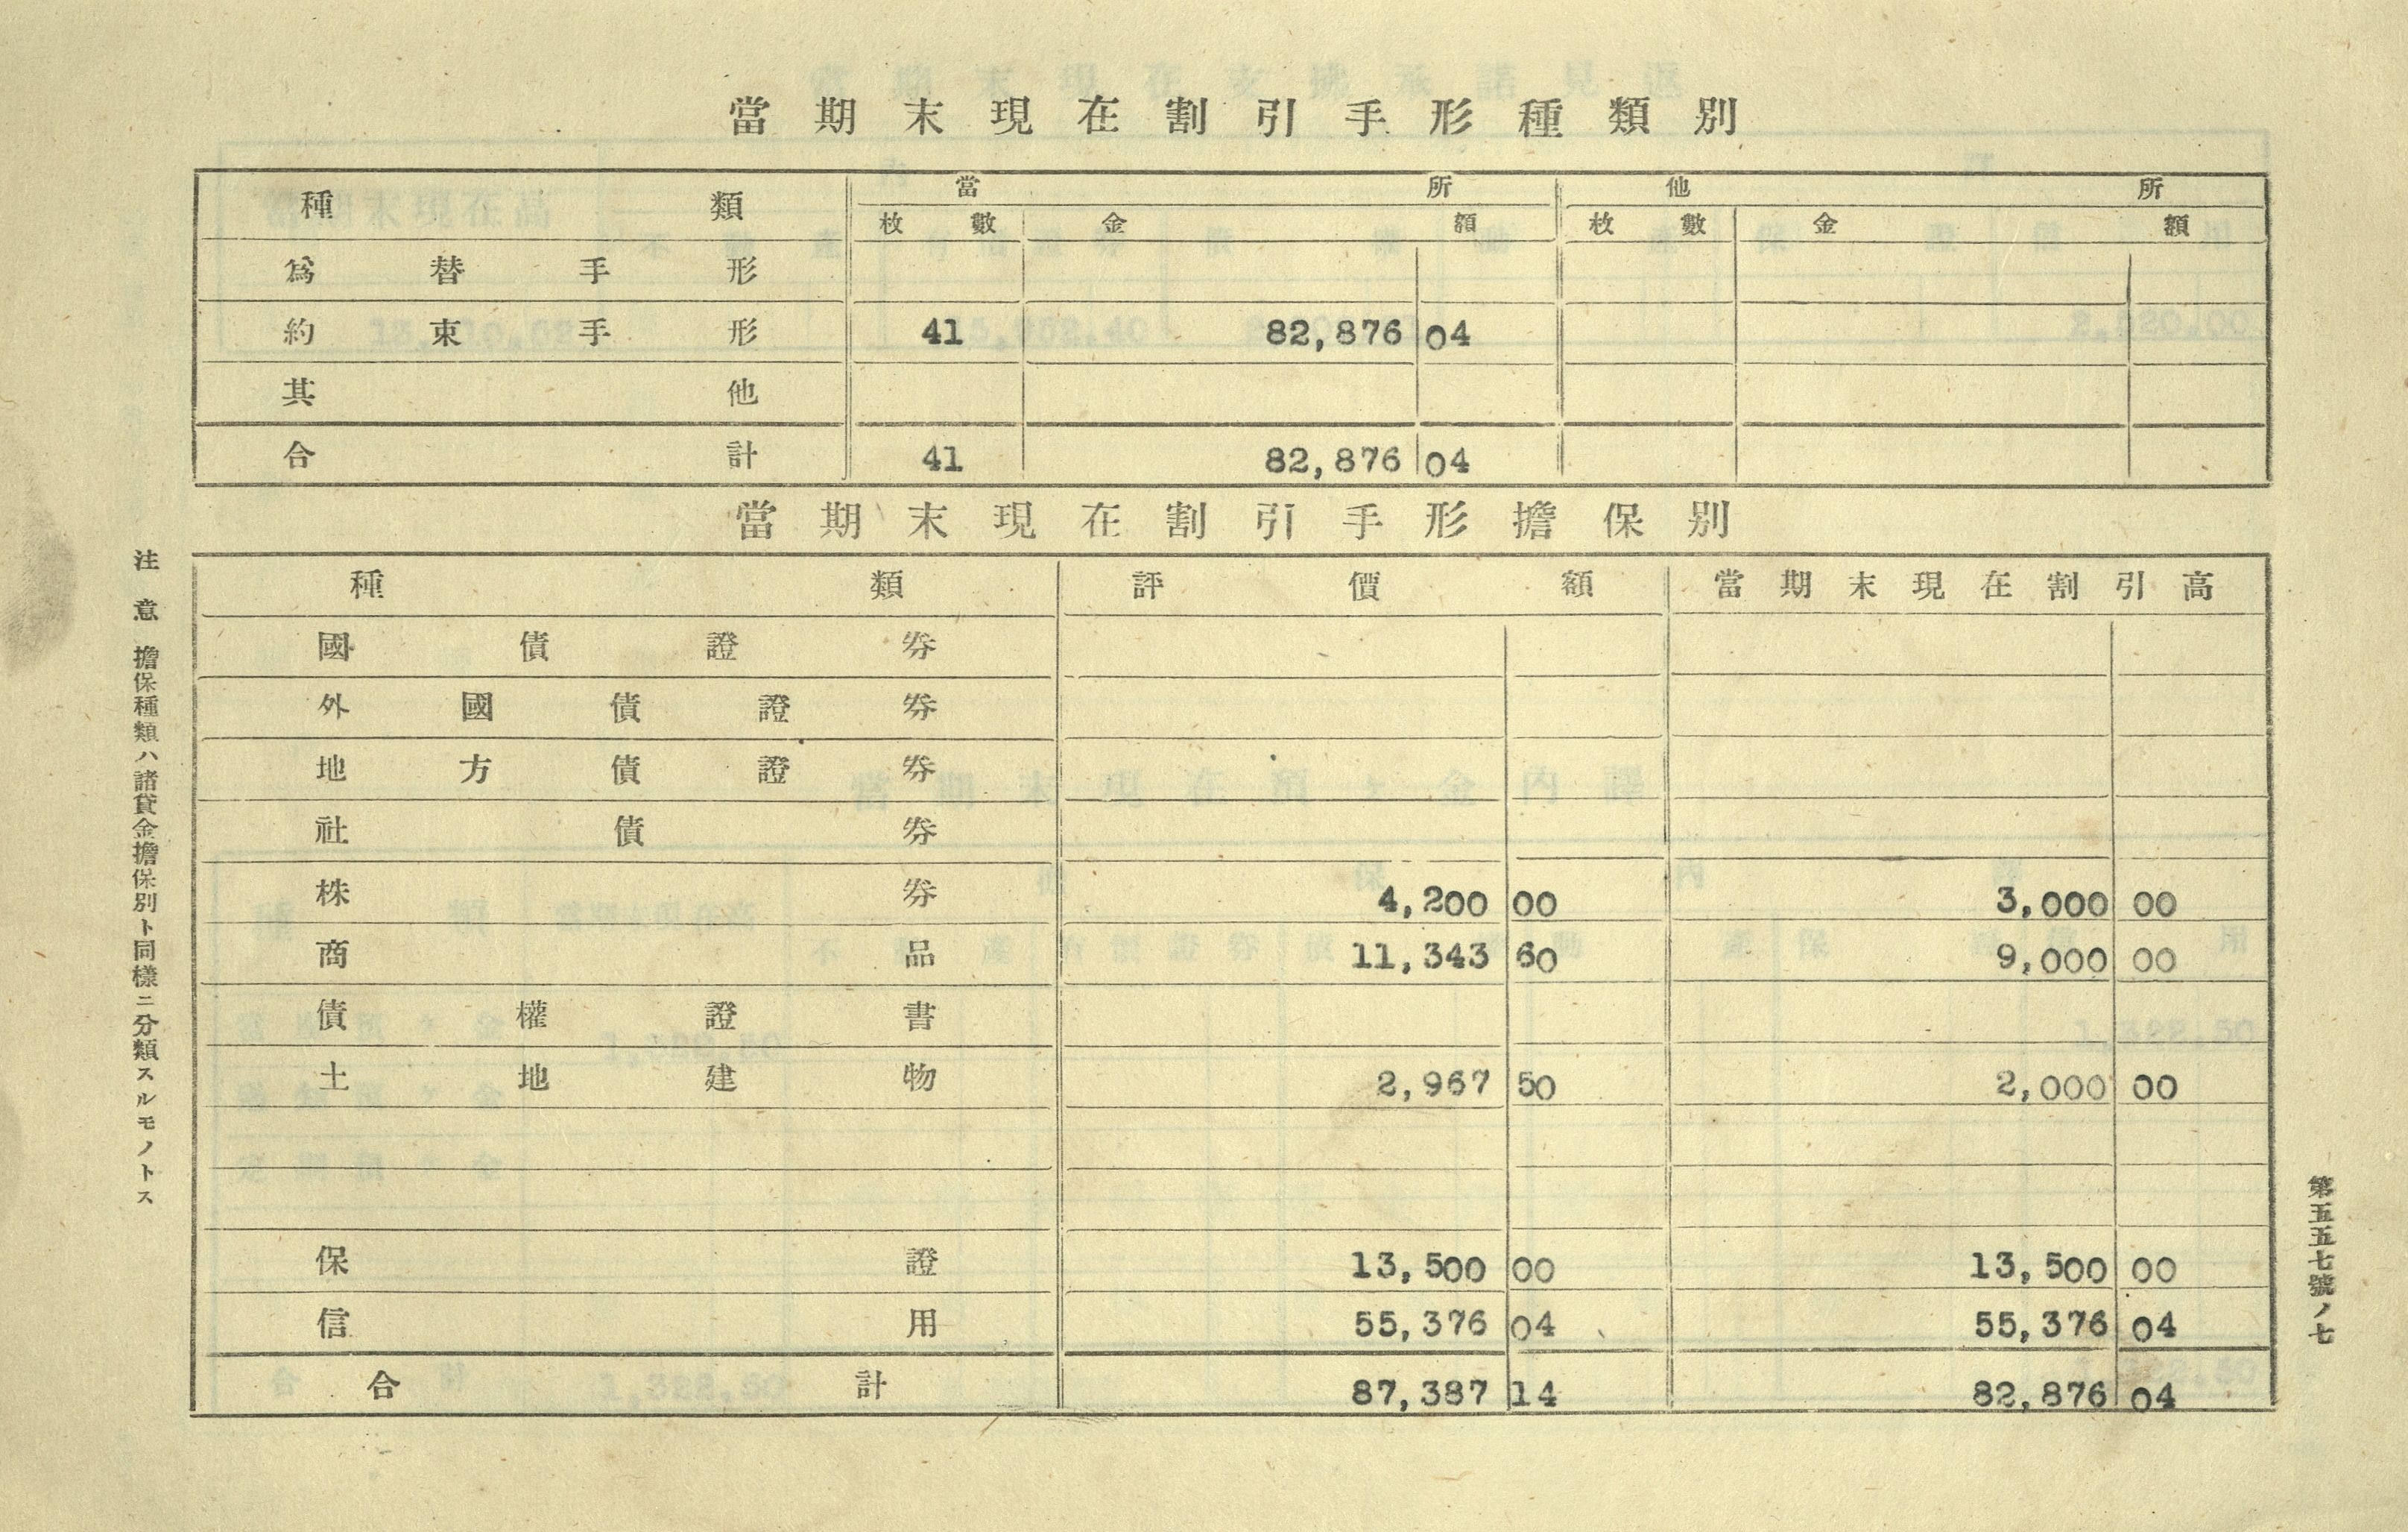 當期末現在割引手形種類別
種類 當所 他所
枚數 金額 枚數 金額
爲替手形
約束手形 41 82,876 04
其他
合計 41 82,876 04
當期末現在割引手形擔保別
種類 評價額 當期末現在割引高
國債證券
外國債證券
地方債證券
社債券
株券 4,200 00 3,000 00
商品 11,343 60 9,000 00
債權證書
土地建物 2,967 50 2,000 00
保證 13,500 00 13,500 00
信用 55,376 04 55,376 04
合計 87,387 14 82,876 04
注意 擔保種類ハ諸貸金擔保別ト同樣ニ分類スルモノトス
第五五七號ノ七